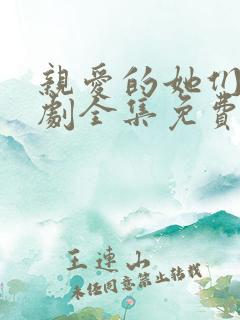 親愛的她们
劇全集免費
王連山
未经同意禁止转载